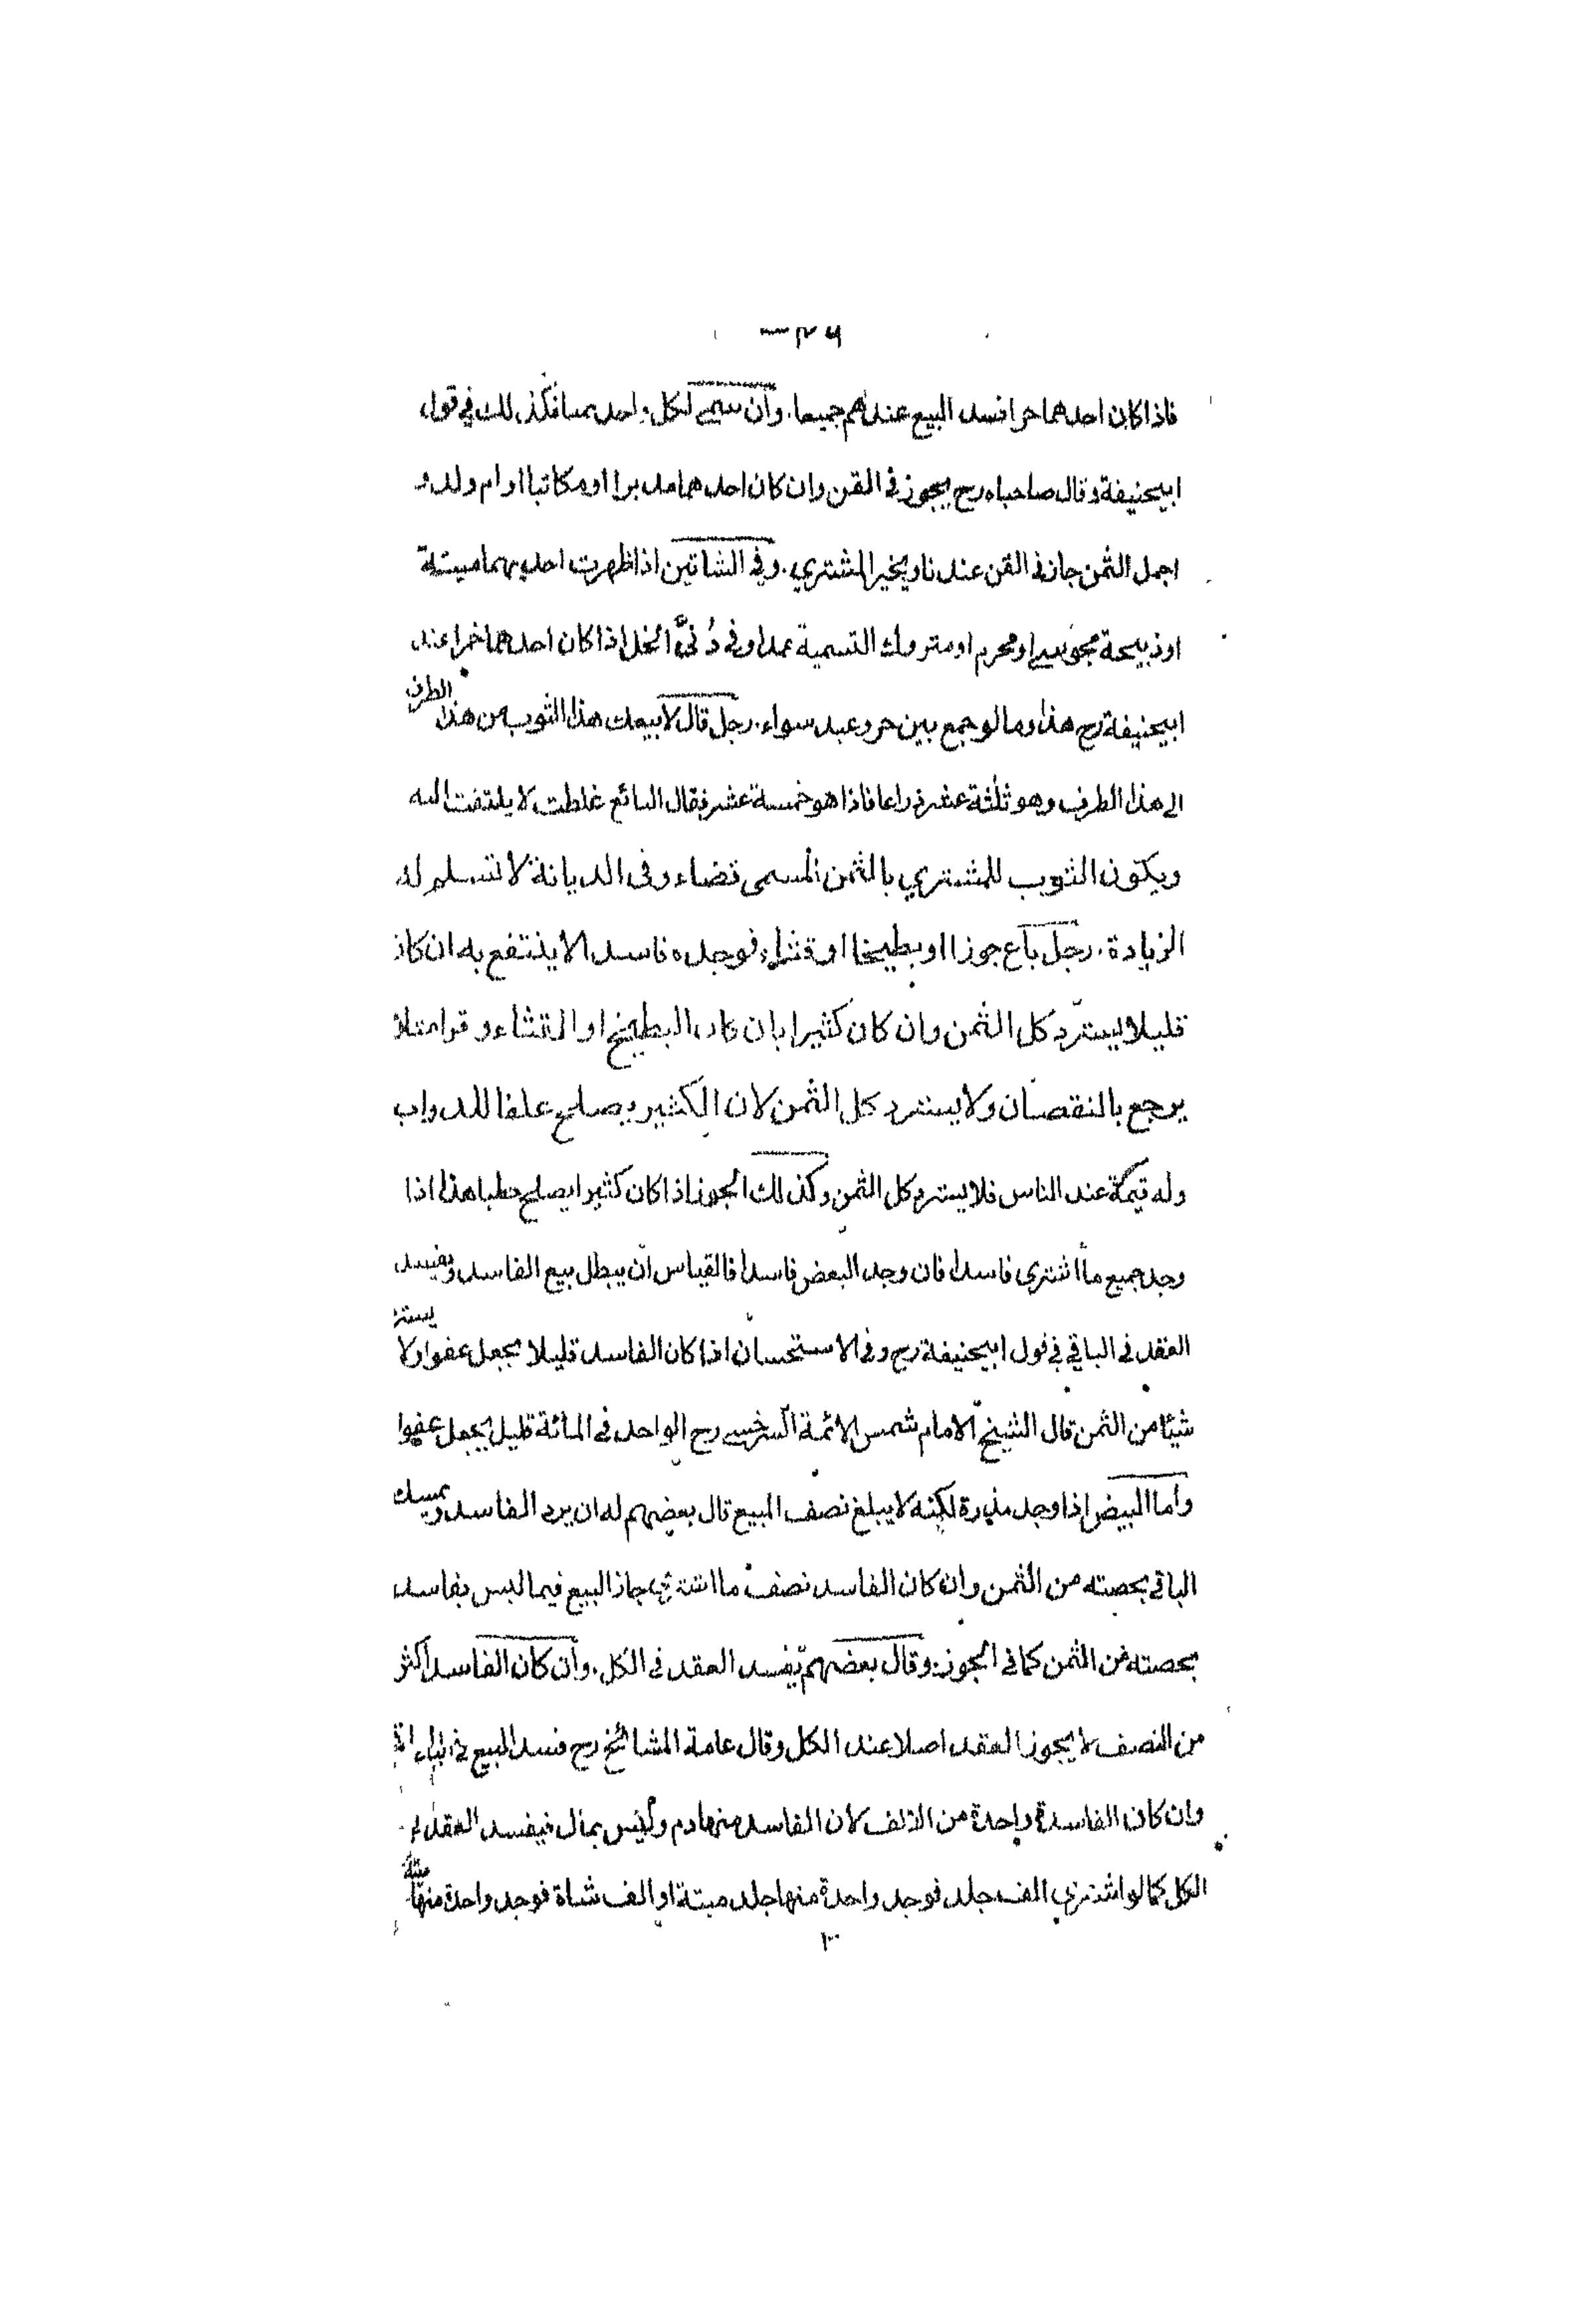 فاذا كان احدهما حرا فسد البيع عندهم جميعا. وان سمى لكل واحد ثمنا فكذلك في قول
ابيحنيفة وقال صاحباه رح يجوز في القن وان كان احدهما مدبرا او مكاتبا او ام ولد و
اجمل الثمن جاز في القن عندنا ويخير المشتري. وفي الشاتين اذا ظهرت احديهما ميتة
او ذبيحة مجوسي او محرم او متروك التسمية عمدا وفي دُنيَّ الخل اذا كان احدهما خمرا عند
ابيحنيفة رح هذا وما لو جمع بين حر وعبد سواء. رجل قال لابيعك هذا الثوب من هذا الطرف
الى هذا الطرف وهو ثلثة عشر ذراعا فاذا هو خمسة عشر فقال البائع غلطت لا يلتفت اليه
ويكون الثوب للمشتري بالثمن المسمى قضاء وفى الديانة لا تسلم له
الزيادة. رجل باع جوزا او بطيخا او قثاء فوجده فاسدا لا ينتفع به ان كان
قليلا يسترد كل الثمن وان كان كثيرا بان كان البطيخ او القثاء وقرا مثلا
يرجع بالنقصان ولا يسترد كل الثمن لان الكثير يصلح علفا للدواب
وله قيمة عند الناس فلا يسترد كل الثمن وكذلك الجوز اذا كان كثيرا يصلح حطبا هذا اذا
وجد جميع ما اشترى فاسدا فان وجد البعض فاسدا فالقياس ان يبطل بيع الفاسد ويفسد
العقد في الباقي في قول ابيحنيفة رح وفي الاستحسان اذا كان الفاسد قليلا يجعل عفوا ولا يسترد
شيئا من الثمن قال الشيخ الامام شمس الائمة السرخسي رح الواحد في المائة قليل يجعل عفوا
واما البيض اذا وجد مذرة لكنه لا يبلغ نصف المبيع قال بعضهم له ان يرد الفاسد ويمسك
الباقي بحصته من الثمن وان كان الفاسد نصف ما اشترى جاز البيع فيما ليس بفاسد
بحصته من الثمن كما في الجوز. وقال بعضهم يفسد العقد في الكل. وان كان الفاسد اكثر
من النصف لا يجوز العقد اصلا عند الكل وقال عامة المشائخ رح فسد البيع في
وان كان الفاسدة واحدة من الالف لان الفاسد منها دم وليس بمال فيفسد العقد في
الكل كما لو اشترى الف جلد فوجد واحدة منها جلد ميتة او الف شاة فوجد واحدة منها ميتة